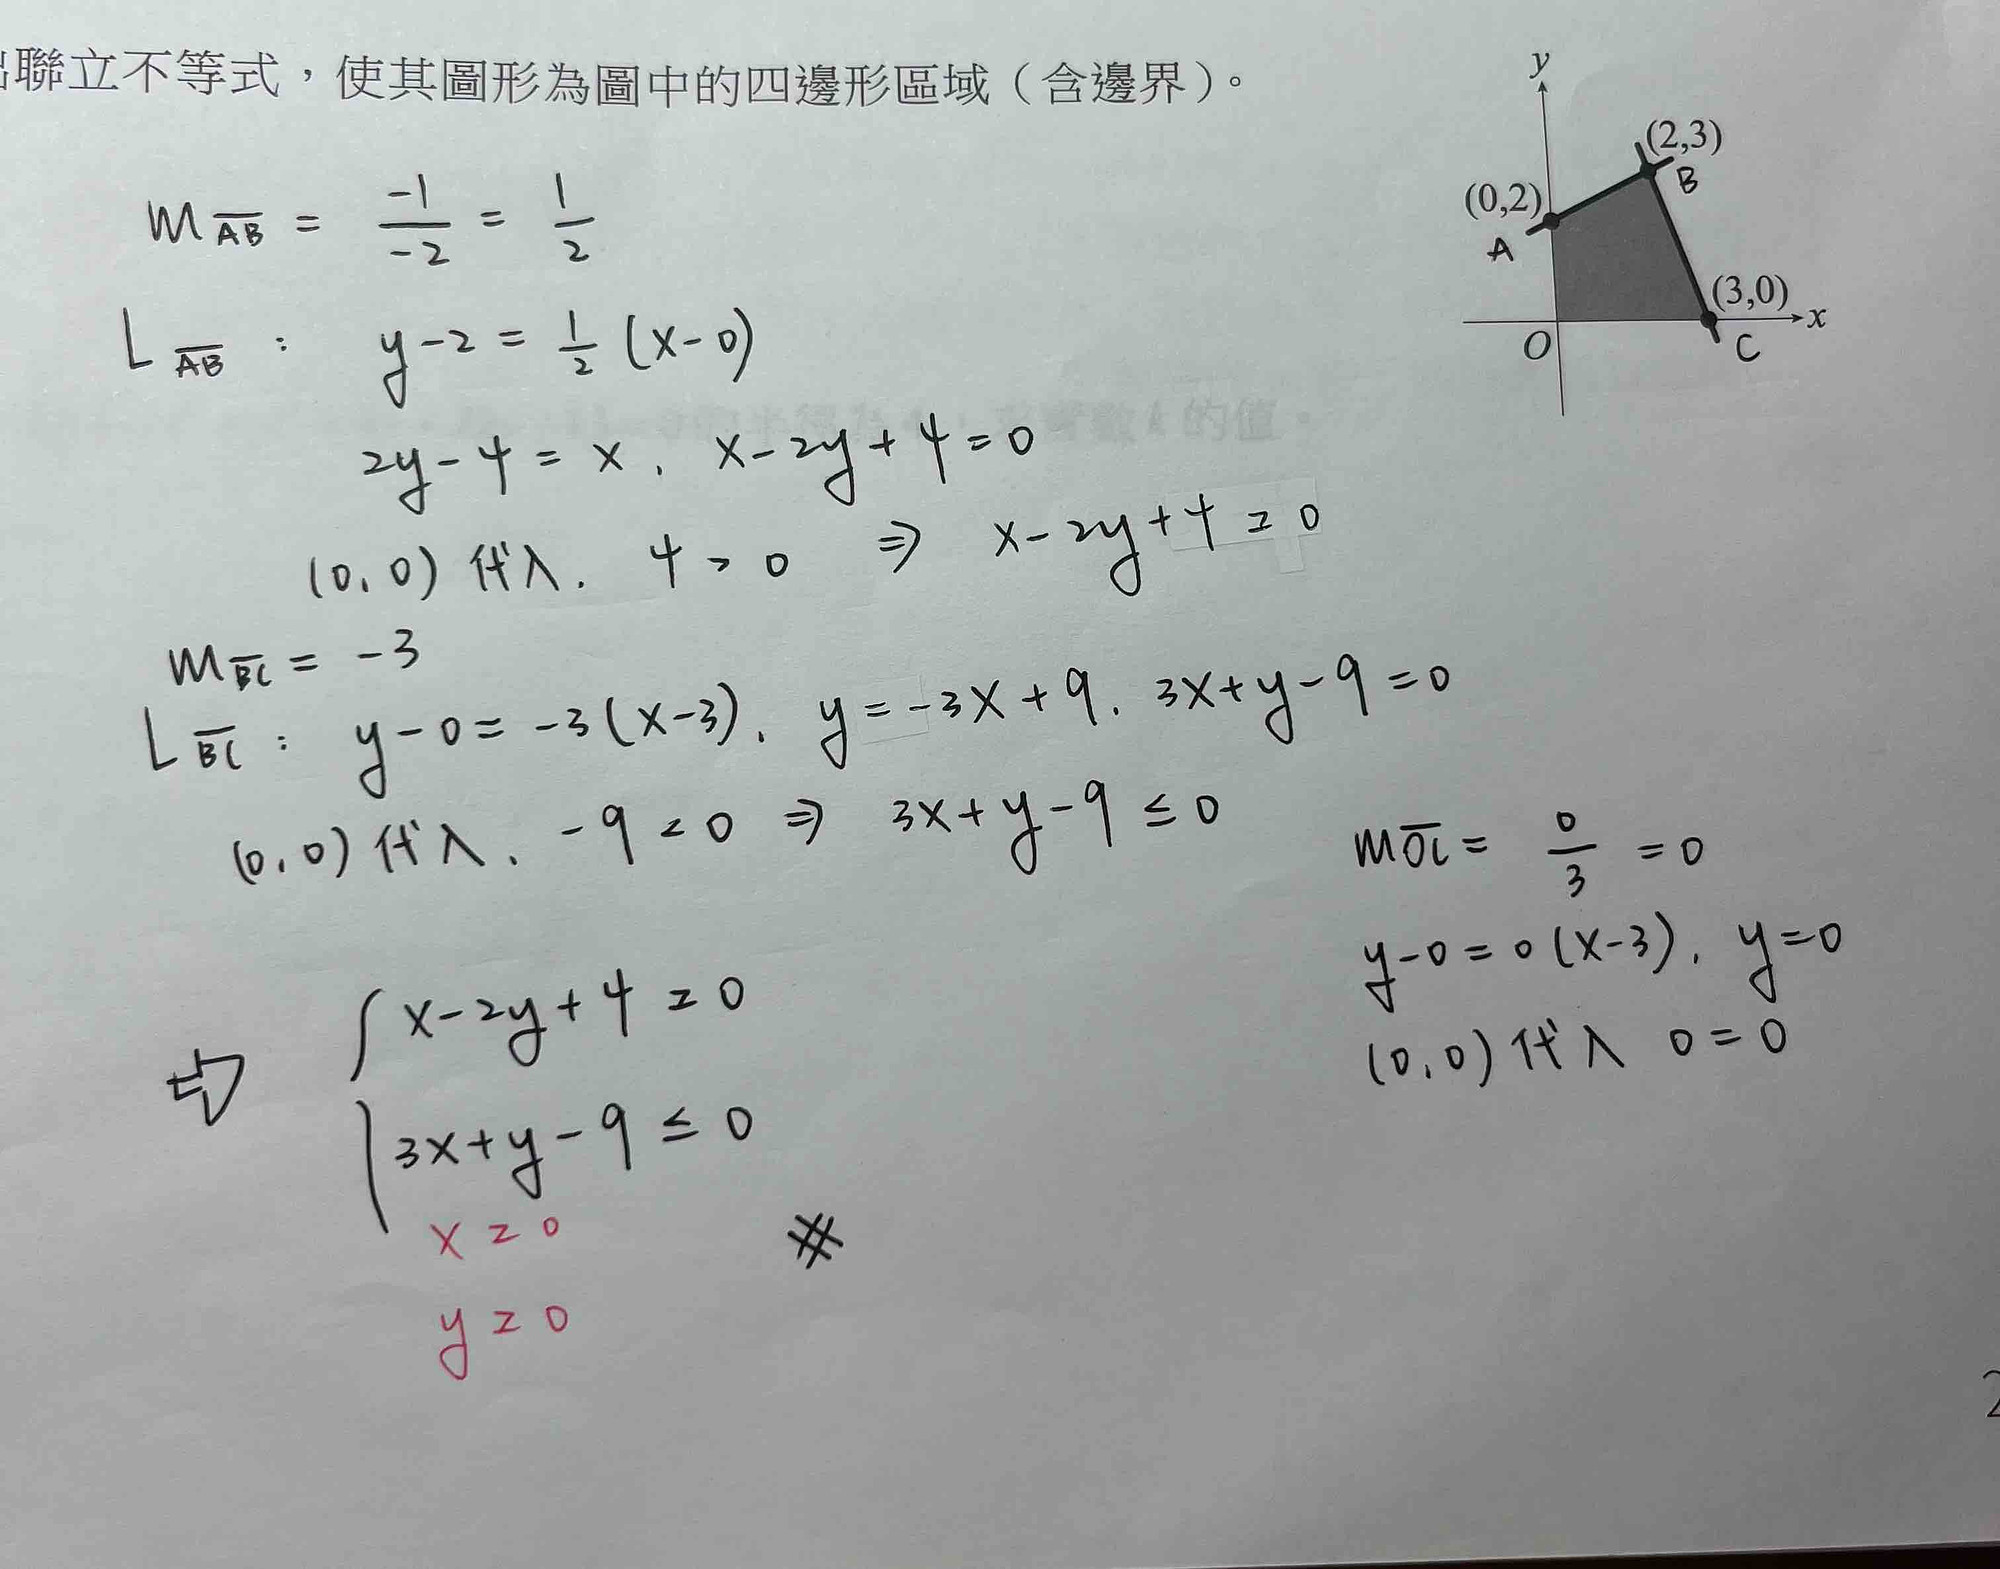 聯立不等式，使其圖形為圖中的四邊形區域（含邊界）。
y
(2,3)
B
(0,2)
A
(3,0)
x
O
C
m_AB = -1/-2 = 1/2
L_AB : y-2 = 1/2 (x-0)
2y-4 = x, x-2y+4=0
(0,0) 代入, 4>0 ⇒ x-2y+4≥0
m_BC = -3
L_BC : y-0 = -3(x-3), y=-3x+9, 3x+y-9=0
(0,0) 代入, -9<0 ⇒ 3x+y-9≤0
m_OC = 0/3 = 0
y-0=0(x-3), y=0
(0,0) 代入 0=0
⇒ { x-2y+4≥0
3x+y-9≤0
x≥0
y≥0
#